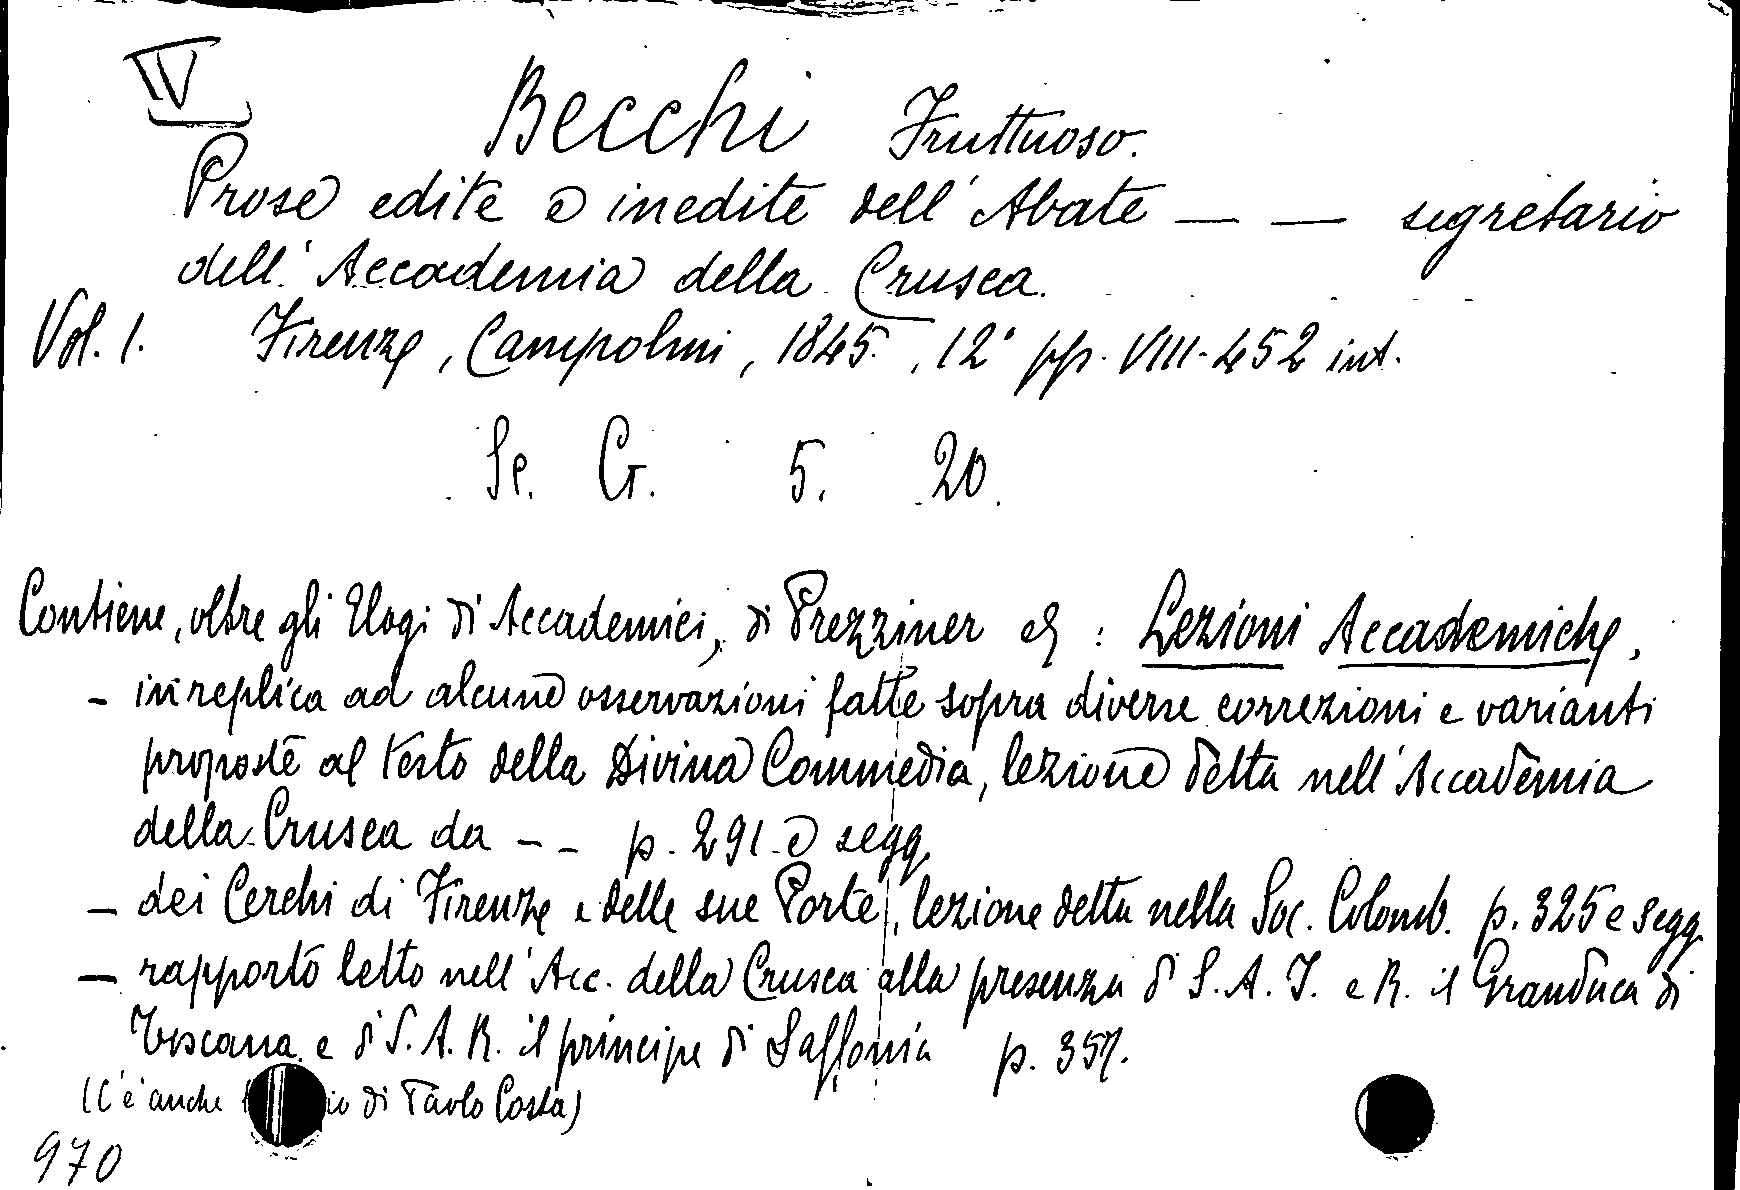 IV
Becchi Fruttuoso.
Prose edite e inedite dell'Abate — — segretario
dell'Accademia della Crusca.
Vol. 1. Firenze, Campolmi, 1845., 12° pp. VIII-452 int.
Sp. G. 5. 20.
Contiene, oltre gli Elogi di Accademici, di Prezziner : Lezioni Accademiche,
- in replica ad alcune osservazioni fatte sopra diverse correzioni e varianti
proposte al testo della Divina Commedia, lezione detta nell'Accademia
della Crusca da -- p. 291 e segg.
- dei Cerchi di Firenze e delle sue Porte, lezione detta nella Soc. Colomb. p. 325 e segg.
- rapporto letto nell'Acc. della Crusca alla presenza di S. A. I. e R. il Granduca di
Toscana e di S. A. R. il principe di Sassonia p. 357.
(C'è anche di Paolo Costa)
970